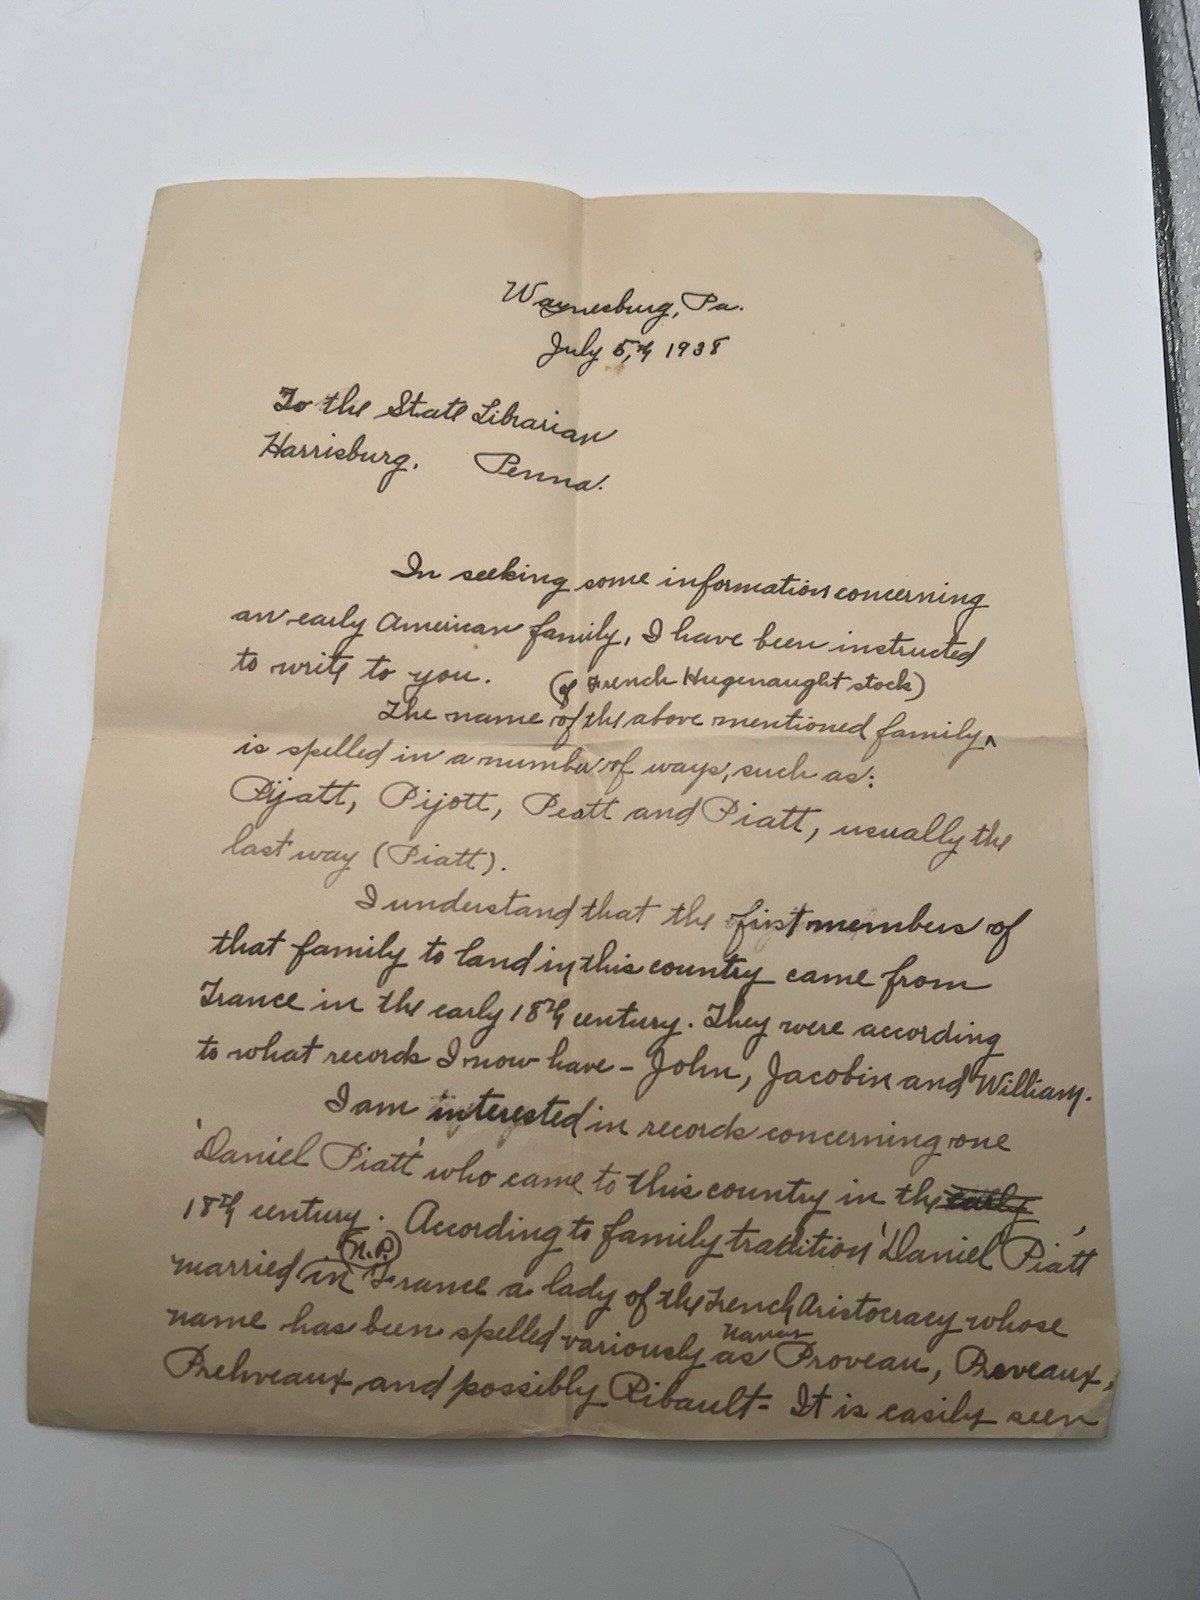 Waynesburg, Pa.
July 5,th 1938
To the State Librarian
Harrisburg. Penna.
In seeking some information concerning
an early American family, I have been instructed
to write to you.
(of French Hugenaught stock)
The name of the above mentioned family^
is spelled in a number of ways, such as:
Pyatt, Pijott, Peatt and Piatt, usually the
last way (Piatt).
I understand that the first members of
that family to land in this country came from
France in the early 18th century. They were according
to what records I now have - John, Jacobin and William.
I am interested in records concerning one
'Daniel Piatt' who came to this country in the early
18th century. According to family tradition 'Daniel Piatt'
(N.P.)
married in France a lady of the French Aristocracy whose
name has been spelled variously as Proveau, Preveaux,
Prehveaux, and possibly Ribault- It is easily seen